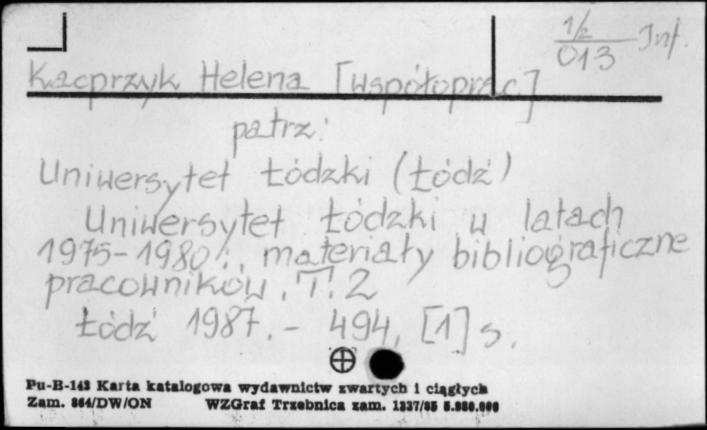 1/2
013 Inf.
Kacprzyk Helena [współoprac.]
patrz:
Uniwersytet Łódzki (Łódź)
Uniwersytet Łódzki w latach
1975-1980 : materiały bibliograficzne
pracowników. T. 2
Łódź 1987. - 494, [1] s.
Pu-B-143 Karta katalogowa wydawnictw zwartych i ciągłych
Zam. 864/DW/ON WZGraf Trzebnica zam. 1337/85 5.000.000